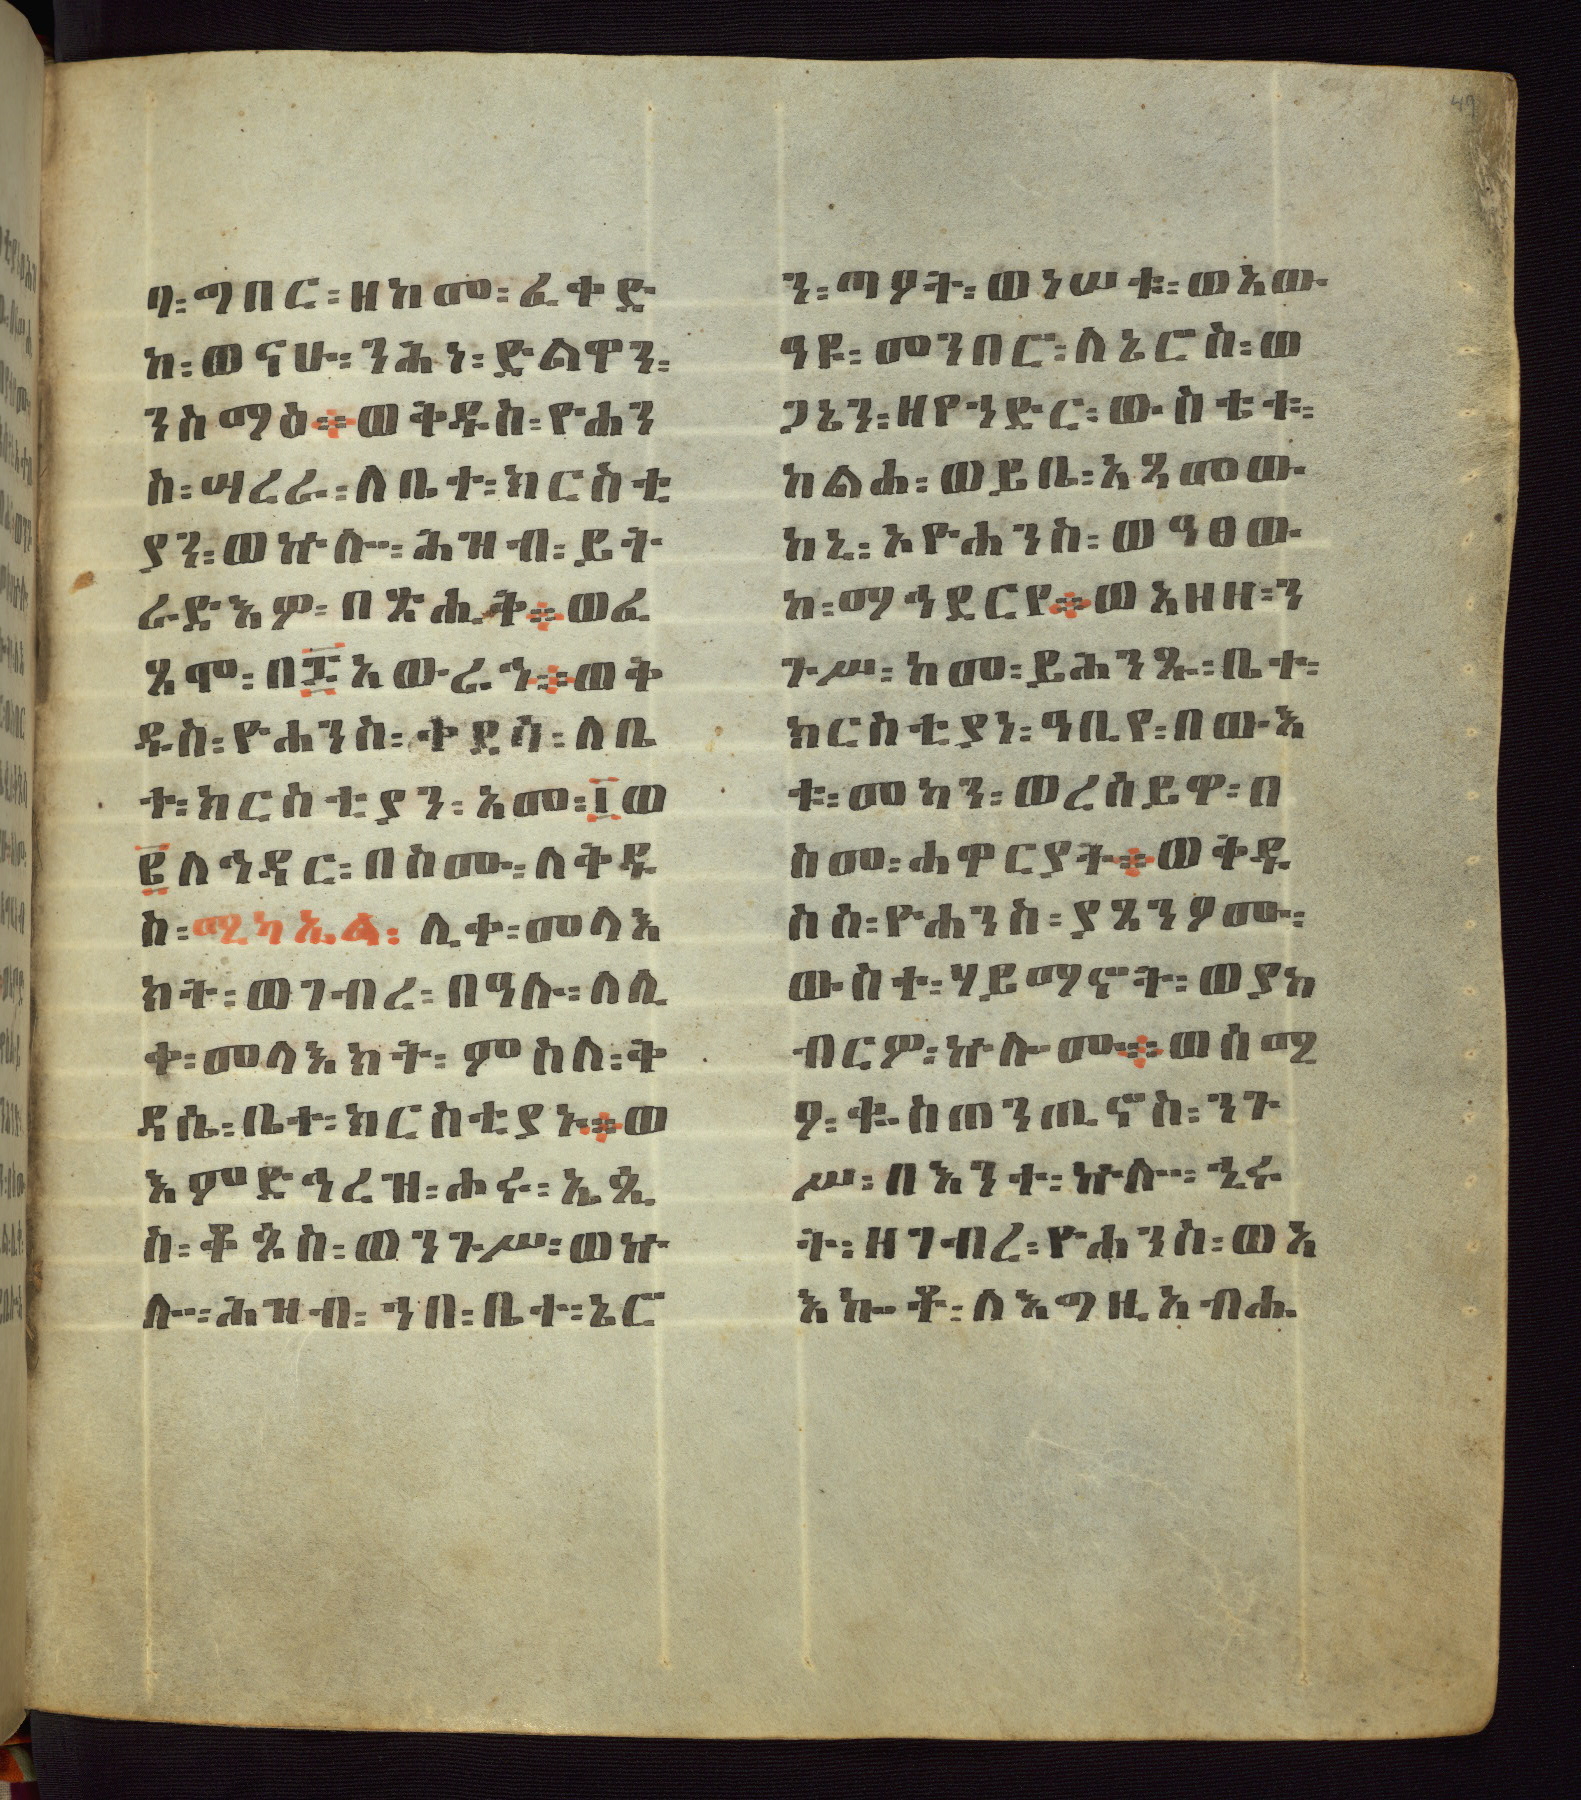 ባ፡ ግበር፡ ዘከመ፡ ፈቀድ
ከ፡ ወናሁ፡ ንሕነ፡ ድልዋን፡
ንስማዕ። ወቅዱስ፡ ዮሐን
ስ፡ ሣረራ፡ ለቤተ፡ ክርስቲ
ያን፡ ወኵሉ፡ ሕዝብ፡ ይት
ራድእም፡ በጽሒቅ። ወፈ
ጸሞ፡ በ፫አውራኅ። ወቅ
ዱስ፡ ዮሐንስ፡ ቀደሳ፡ ለቤ
ተ፡ ክርስቲያን፡ አመ፡ ፲ወ
፪ለኅዳር፡ በስሙ፡ ለቅዱ
ስ፡ ሚካኤል፡ ሊቀ፡ መላእ
ክት፡ ወገብረ፡ በዓሉ፡ ለሊ
ቀ፡ መላእክት፡ ምስለ፡ ቅ
ዳሴ፡ ቤተ፡ ክርስቲያኑ። ወ
እምድኅረዝ፡ ሖሩ፡ ኤጲ
ስ፡ ቆጶስ፡ ወንጉሥ፡ ወኵ
ሉ፡ ሕዝብ፡ ኀበ፡ ቤተ፡ ኔሮ
ን፡ ጣዖት፡ ወነሠቱ፡ ወአው
ዓዩ፡ መንበሮ፡ ለኔሮስ፡ ወ
ጋኔን፡ ዘየኀድር፡ ውስቴቱ፡
ከልሐ፡ ወይቤ፡ አጻመው
ከኒ፡ ኦዮሐንስ፡ ወዓፀው
ከ፡ ማኅደርየ። ወአዘዘ፡ ን
ጉሥ፡ ከመ፡ ይሕንጹ፡ ቤተ፡
ክርስቲያነ፡ ዓቢየ፡ በውእ
ቱ፡ መካን፡ ወረሰይዋ፡ በ
ስመ፡ ሐዋርያት። ወቅዱ
ስሰ፡ ዮሐንስ፡ ያጸንዖሙ፡
ውስተ፡ ሃይማኖት፡ ወያክ
ብርም፡ ኵሎሙ። ወሰሚ
ዖ፡ ቈስጠንጢኖስ፡ ንጉ
ሥ፡ በእንተ፡ ኵሉ፡ ኂሩ
ት፡ ዘገብረ፡ ዮሐንስ፡ ወአ
እኰቶ፡ ለእግዚአብሔ